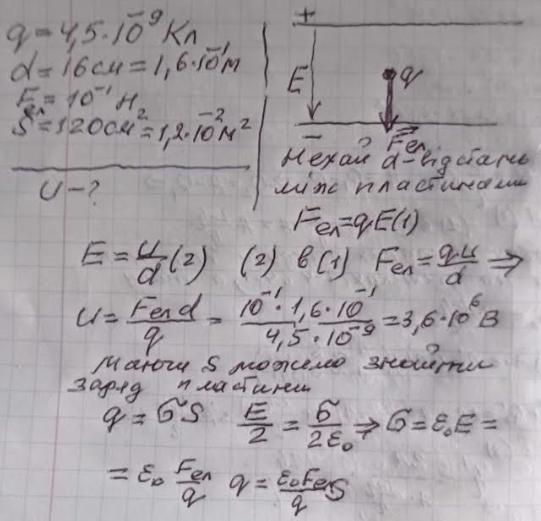 q = 4,5·10⁻⁹ Кл
d = 16 см = 1,6·10⁻¹ м
Fел = 10⁻¹ Н
S = 120 см² = 1,2·10⁻² м²
U - ?
+
E
q
Fел
−
Нехай d - відстань
між пластинами
Fел = qE (1)
E = u/d (2) (2) в (1) Fел = qu/d ⇒
U = Fел d/q = 10⁻¹·1,6·10⁻¹/4,5·10⁻⁹ = 3,6·10⁶ В
Маючи S можемо знайти
заряд пластини
q = σS E/2 = σ/2ε₀ ⇒ σ = ε₀E =
= ε₀ Fел/q q = ε₀Fел/q S